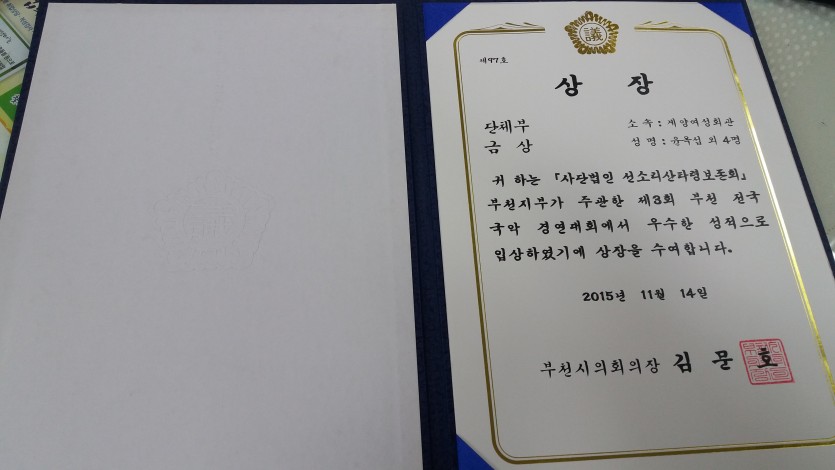 議
제97호
상 장
단체부 소 속 : 계양여성회관
금 상 성 명 : 윤옥섭 외 4명
귀 하는 「사단법인 선소리산타령보존회」
부천지부가 주관한 제3회 부천 전국
국악 경연대회에서 우수한 성적으로
입상하였기에 상장을 수여합니다.
2015년 11월 14일
부천시의회의장 김 문 호